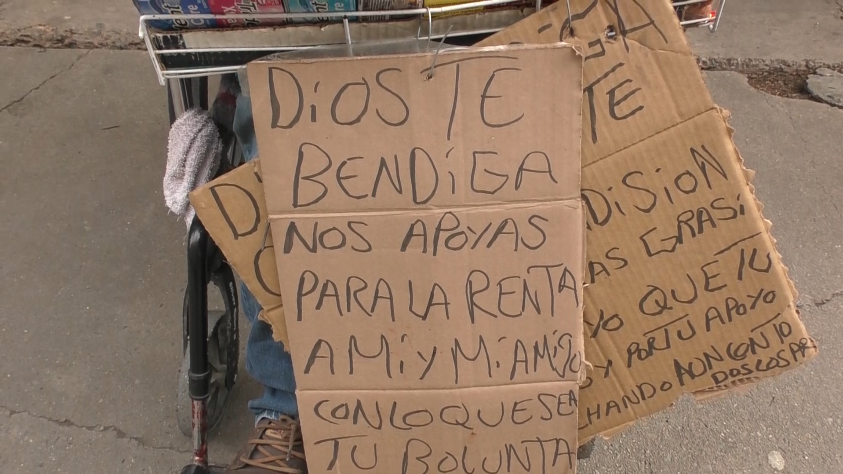 DiOS TE
BENDiGA
NOS APOYAS
PARA LA RENTA
A Mi Y Mi AMiGO
CON LO QUE SEA
TU BOLUNTA
GA
TE
DiSiON
AS GRASi
YO QUE TU
Y POR TU APOYO
CHANDO AUN CON TO
DOS LOS PR
D